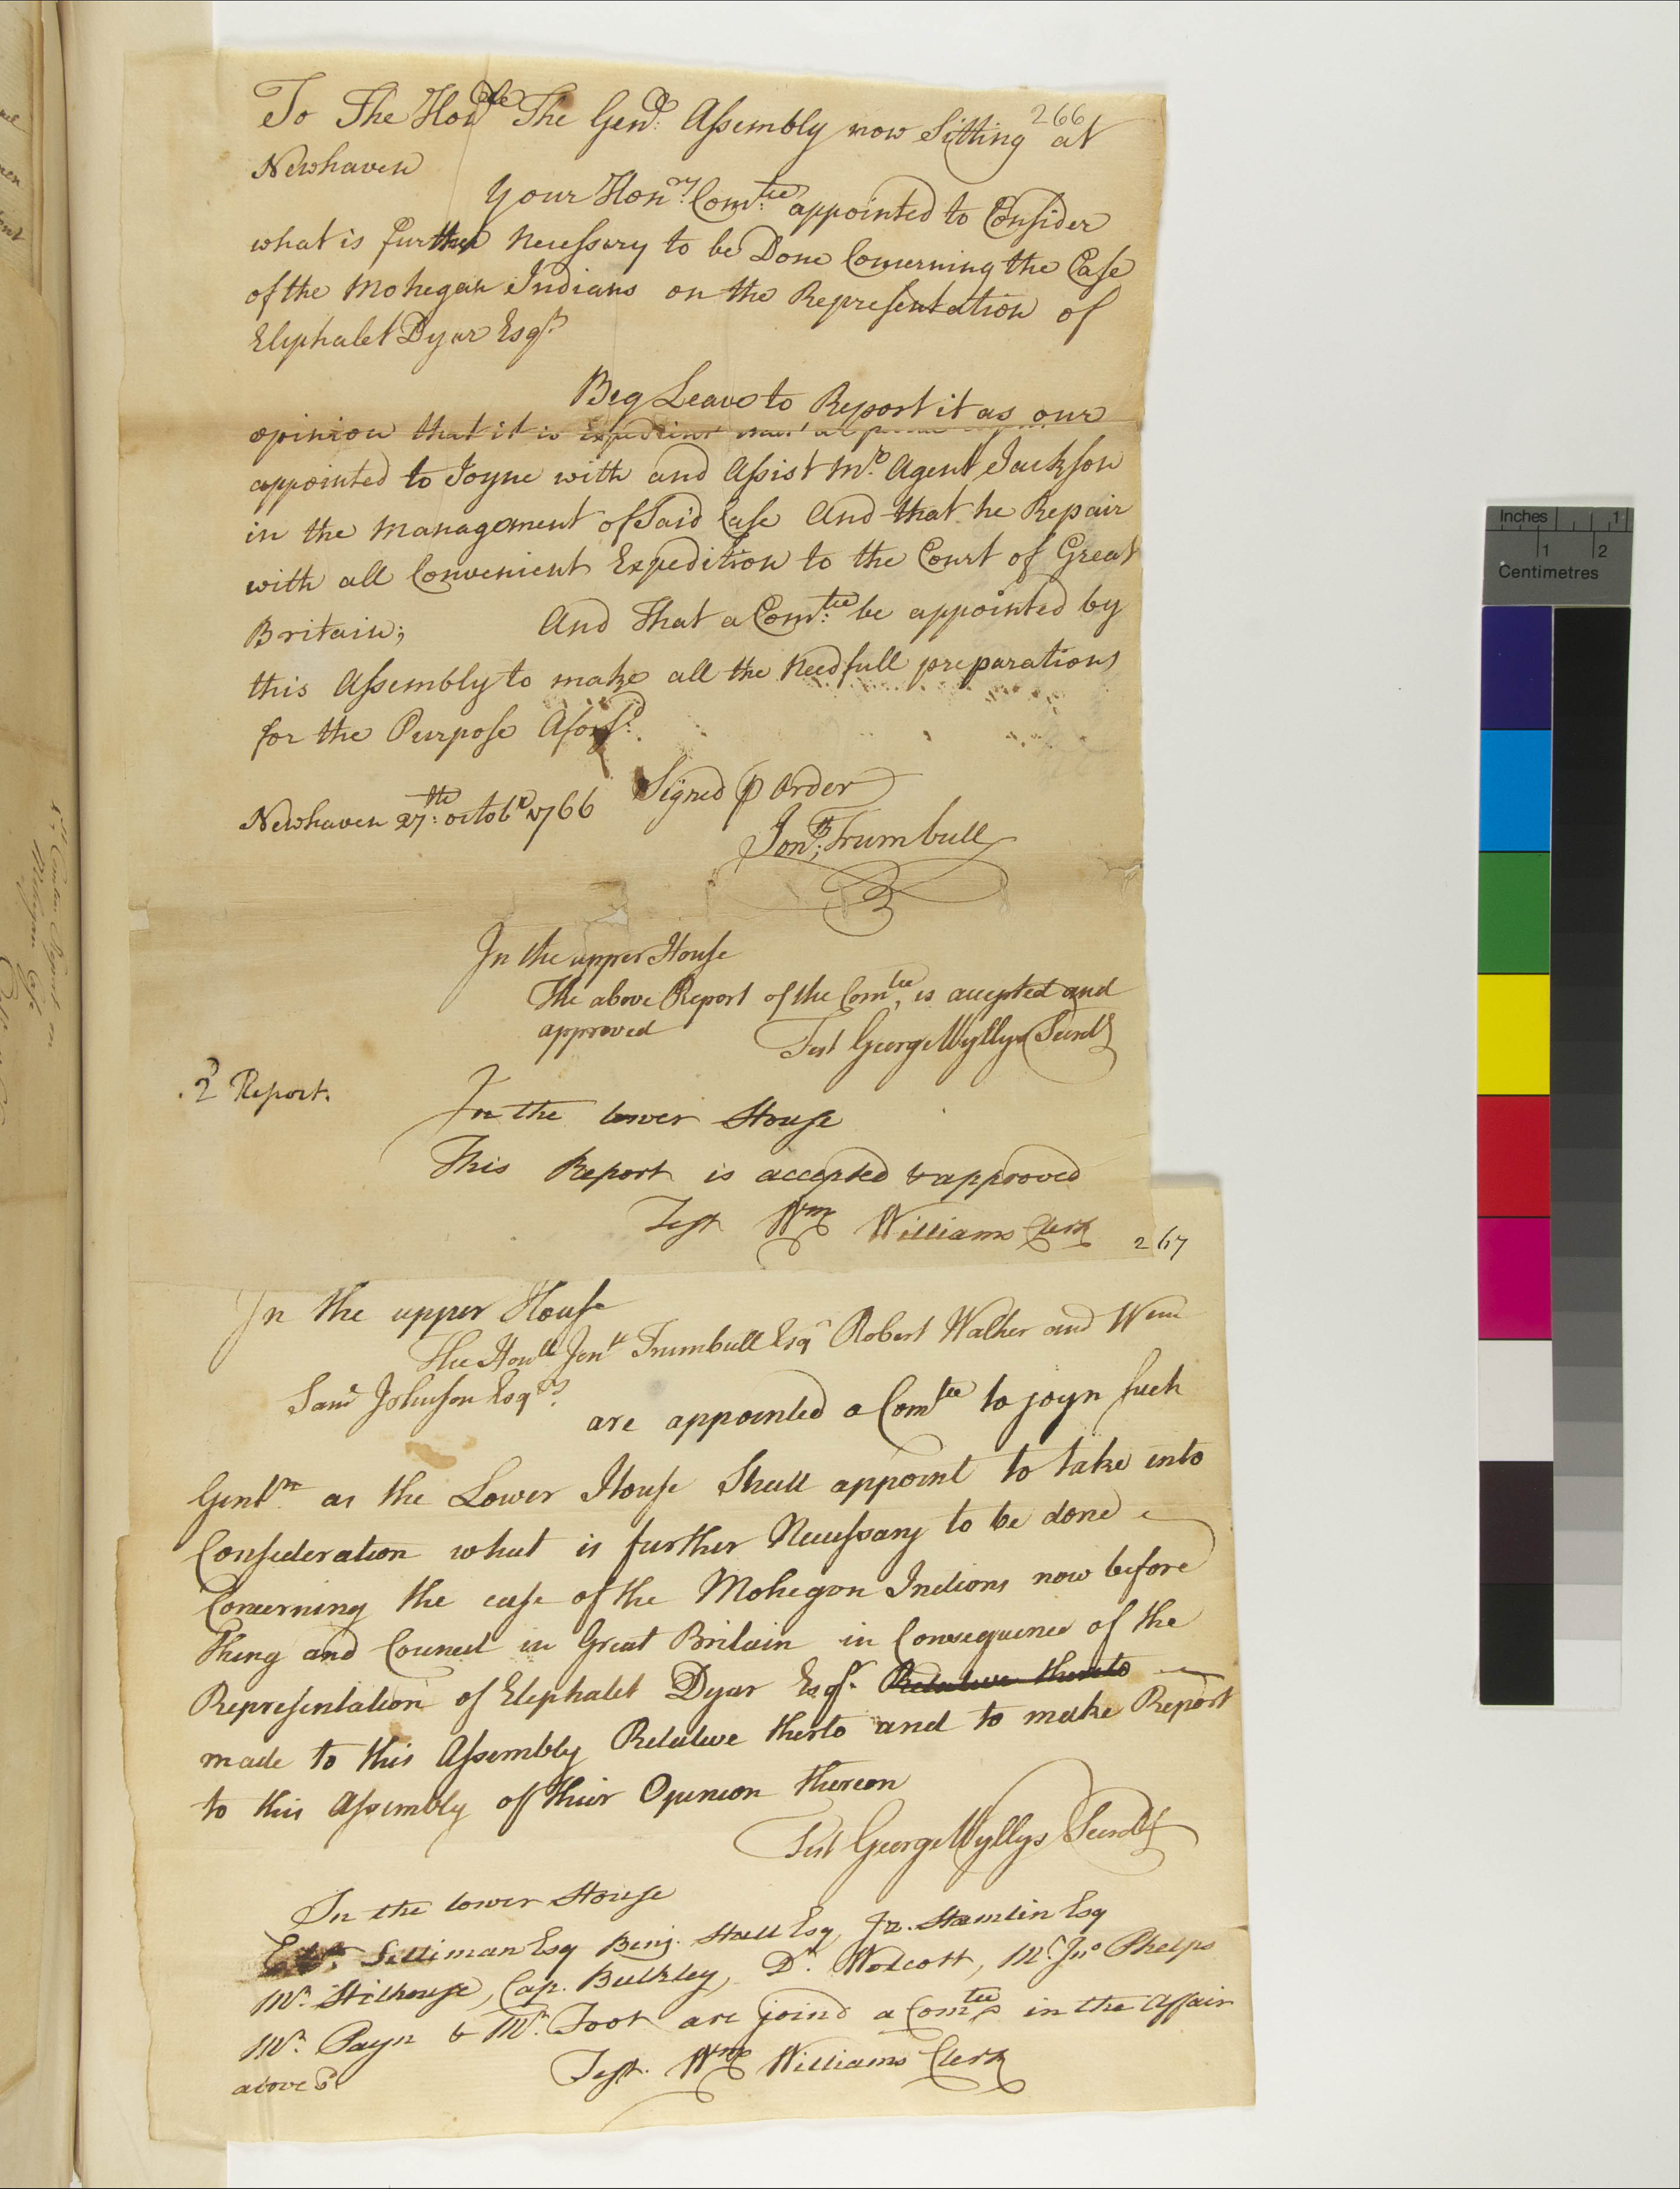 266
To The Hon.ble The Gen.ll Assembly now Sitting at
Newhaven
Your Hon.rs Com.tee appointed to Consider
what is further Necessary to be Done Concerning the Case
of the Mohegan Indians on the Representation of
Eliphalet Dyar Esq.r
Beg Leave to Report it as our
opinion that it is Expedient
appointed to Joyne with and Assist M.r Agent Jackson
in the Management of Said Case And that he Repair
with all Convenient Expedition to the Court of Great
Britain; And That a Com.tee be appointed by
this Assembly to make all the Needfull preparations
for the Purpose Afors.d
Newhaven 27.th octob.r 1766 Signed p Order
Jon.th; Trumbull
In the upper House
The above Report of the Com.tee is accepted and
approved
Test George Wyllys Secret.y
2.d Report.
In the lower House
This Report is accepted & approved
Test W.m Williams Clerk
267
In the upper House
The Hon.ll Jon.th Trumbull Esq.r Robert Walker and Wm
Sam.l Johnson Esq.rs
are appointed a Com.tee to joyn such
Gent.m as the Lower House Shall appoint to take into
Consideration what is further Necessary to be done
Concerning the case of the Mohegan Indions now before
King and Council in Great Britain in Consequence of the
Representation of Elephalet Dyar Esq.r Relative thereto
made to this Assembly Relative therto and to make Report
to this Assembly of their Opinion thereon
Test George Wyllys Secret.y
In the lower House
Silliman Esq Benj. Hall Esq, Jn. Hamlin Esq
M.r Hilhouse, Cap. Bulkley, D.r Wolcott, M.r Jn.o Phelps
M.r Payn & M.r Foot are joind a Com.tee in the Affair
above s.d
Test. W.m Williams Clerk